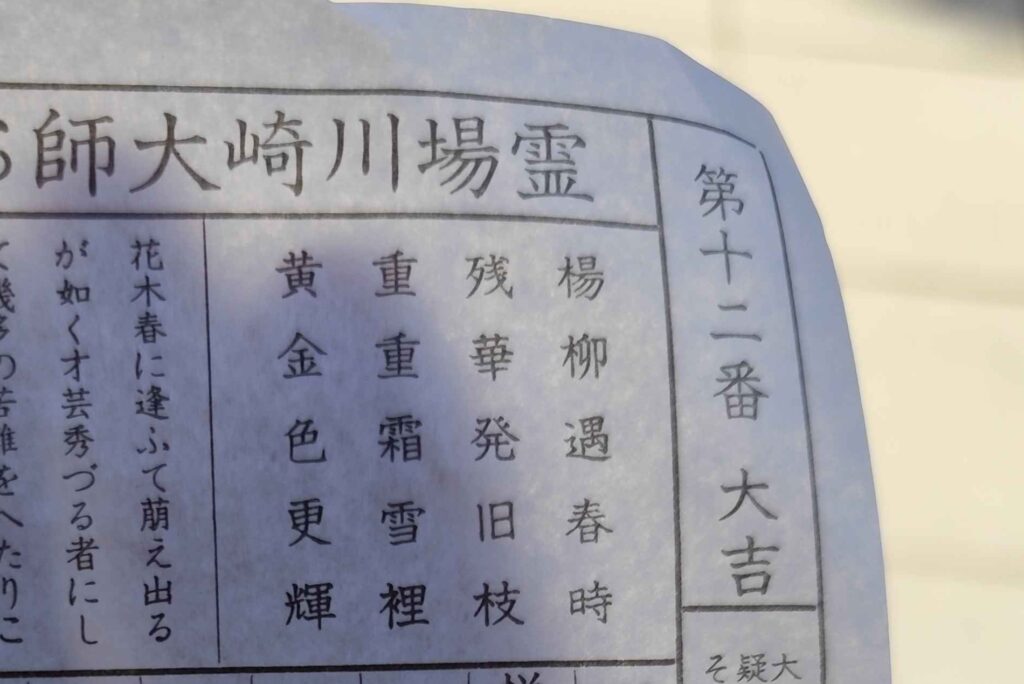 第十二番 大吉
大
疑
そ
霊場川崎大師
楊柳遇春時
残華発旧枝
重重霜雪裡
黄金色更輝
花木春に逢ふて萌え出る
が如くオ芸秀づる者にし
て幾多の苦難をへたりこ